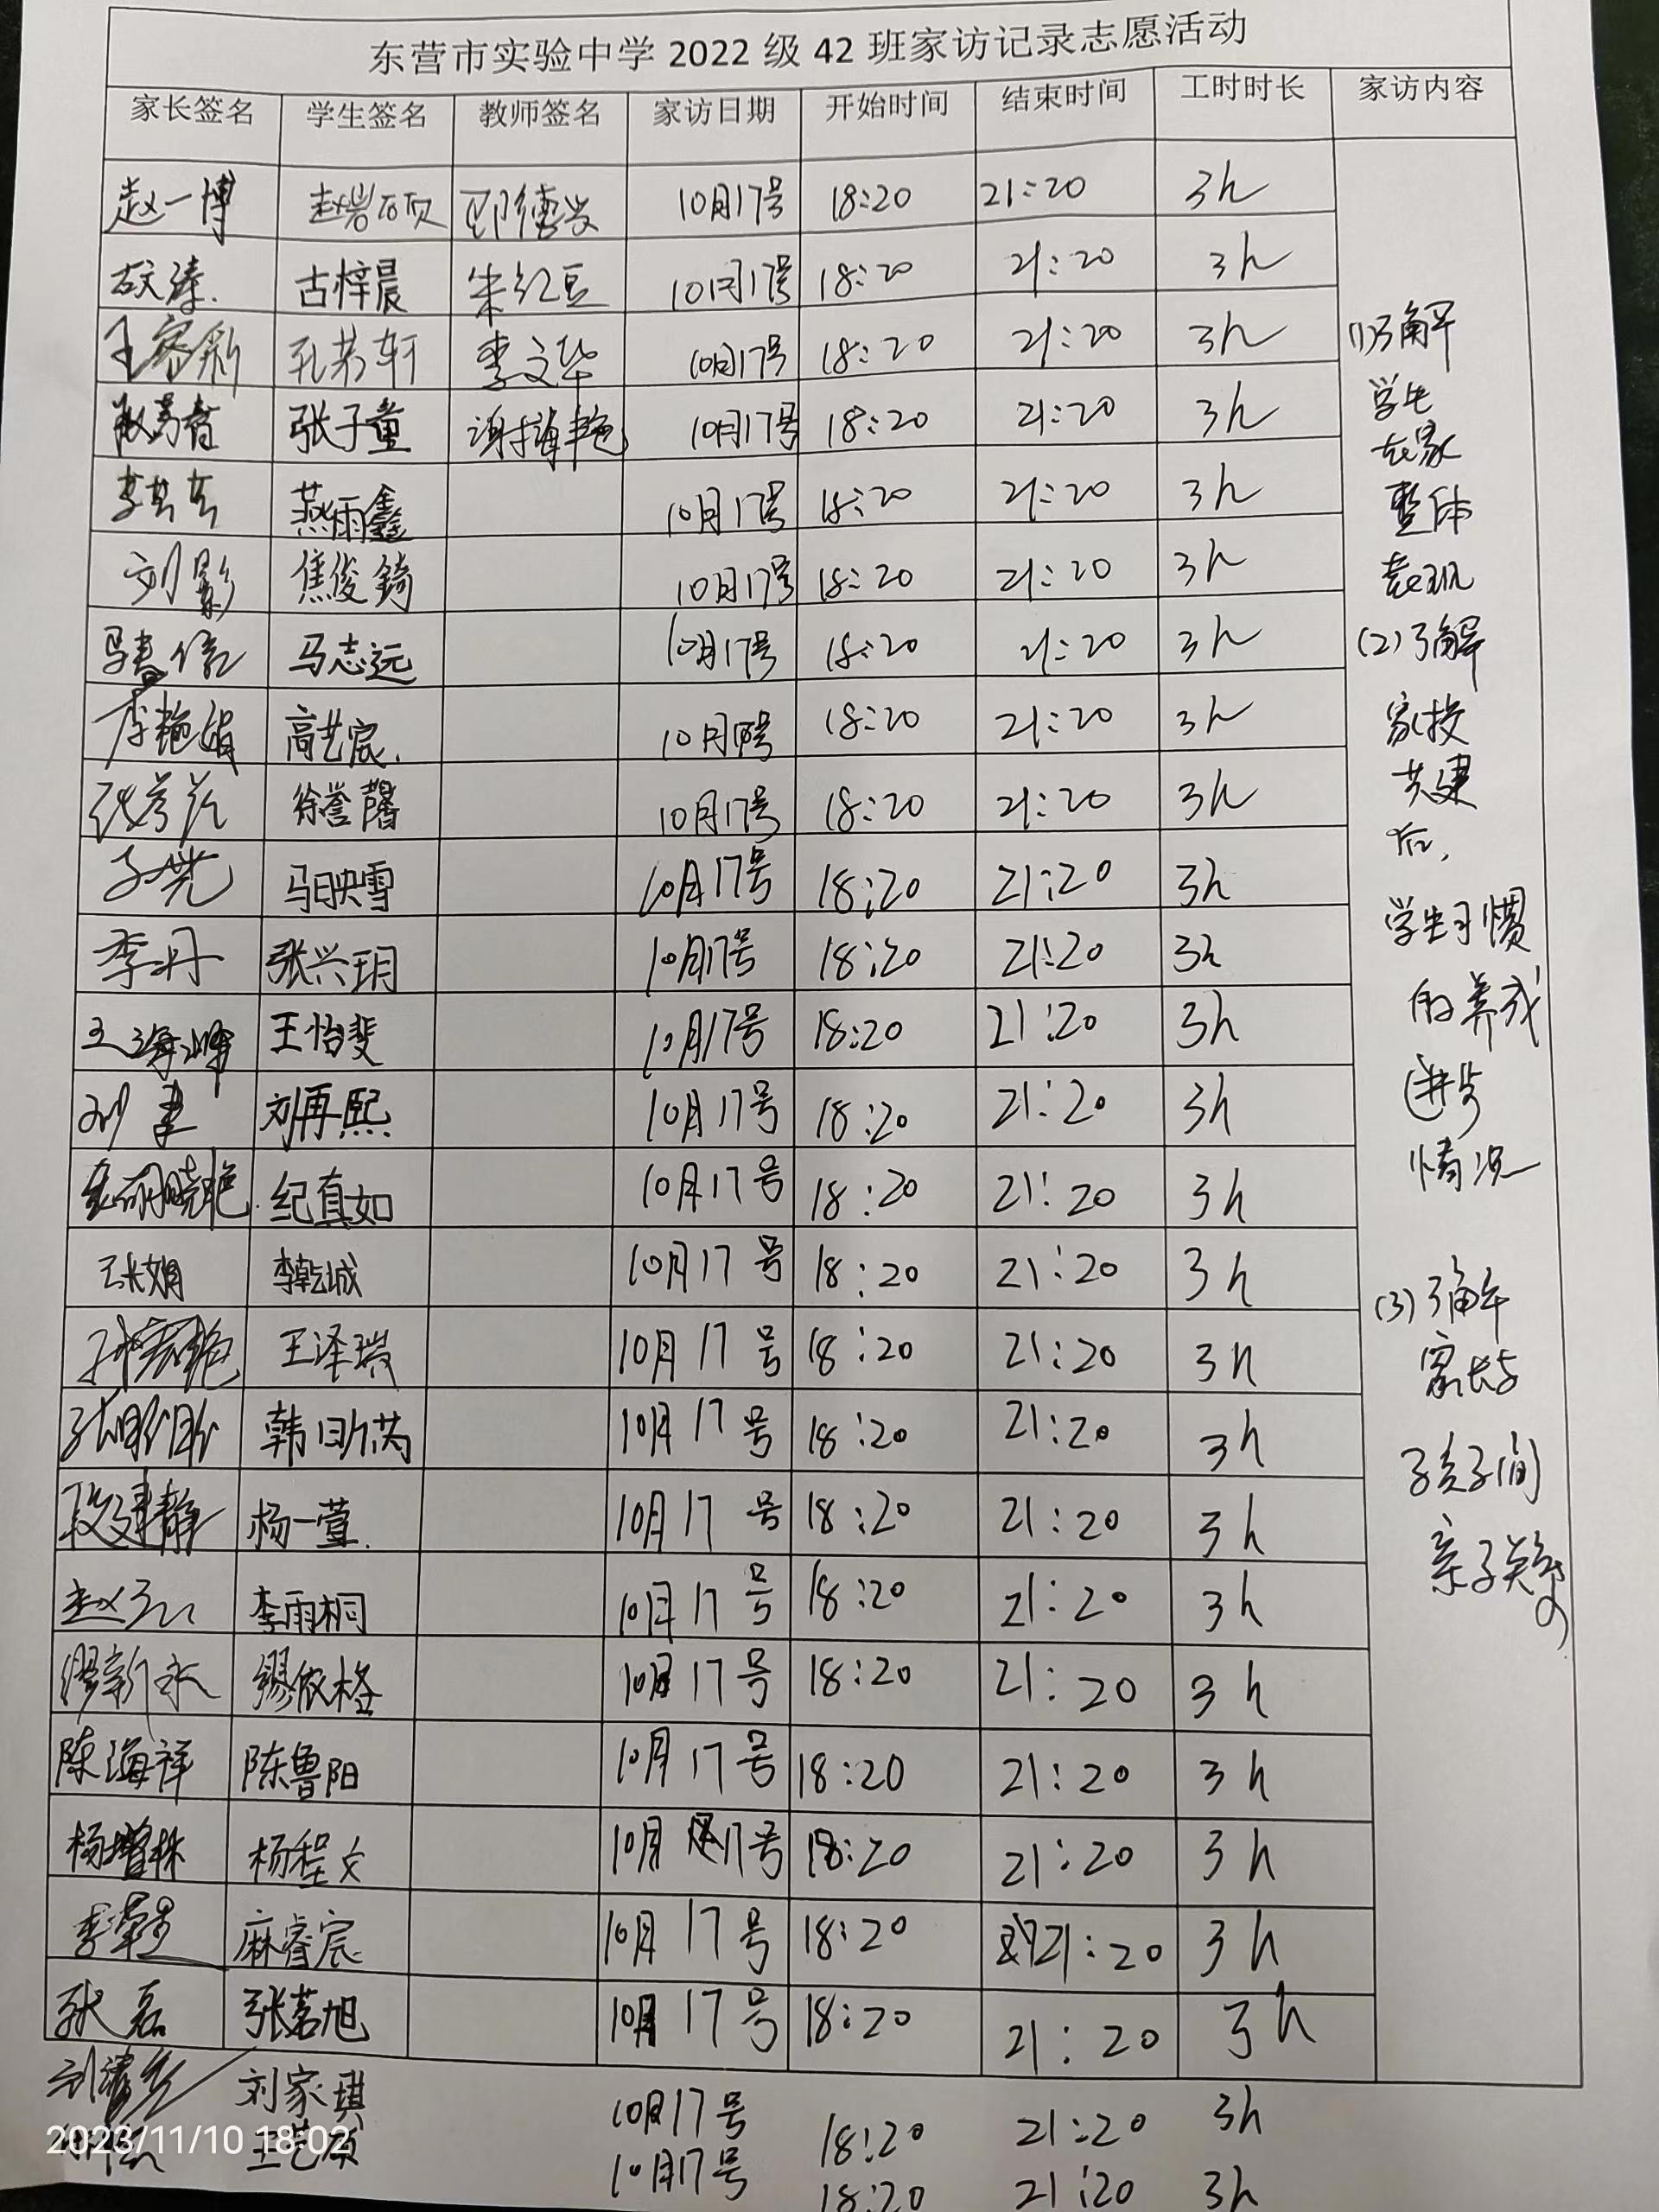 东营市实验中学 2022 级 42 班家访记录志愿活动
家长签名 学生签名 教师签名 家访日期 开始时间 结束时间 工时时长 家访内容
赵一博 赵岩硕 10月17号 18:20 21:20 3h
古梓晨 朱红豆 10月17号 18:20 21:20 3h
孔若轩 李文华 10月17号 18:20 21:20 3h
张子童 谢海艳 10月17号 18:20 21:20 3h
燕雨鑫 10月17号 18:20 21:20 3h
刘影 焦俊錡 10月17号 18:20 21:20 3h
马志远 10月17号 18:20 21:20 3h
李艳娟 高艺宸. 10月17号 18:20 21:20 3h
徐誉馨 10月17号 18:20 21:20 3h
马映雪 10月17号 18:20 21:20 3h
李丹 张兴玥 10月17号 18:20 21:20 3h
王海峰 王怡斐 10月17号 18:20 21:20 3h
刘 刘再熙 10月17号 18:20 21:20 3h
纪真如 10月17号 18:20 21:20 3h
张娟 李乾诚 10月17号 18:20 21:20 3h
王泽瑞 10月17号 18:20 21:20 3h
韩昕芮 10月17号 18:20 21:20 3h
段建静 杨一萱. 10月17号 18:20 21:20 3h
李雨桐 10月17号 18:20 21:20 3h
缪新永 缪依格 10月17号 18:20 21:20 3h
陈海祥 陈鲁阳 10月17号 18:20 21:20 3h
杨增林 杨程文 10月17号 18:20 21:20 3h
麻睿宸 10月17号 18:20 21:20 3h
张磊 张茗旭 10月17号 18:20 21:20 3h
刘家琪 10月17号 18:20 21:20 3h
王艺 10月17号 18:20 21:20 3h
(1)了解
学生
在家
整体
表现
(2)了解
家校
共建
后,
学生习惯
的养成
进步
情况
(3)了解
家长与
孩子间
亲子关系
2023/11/10 18:02